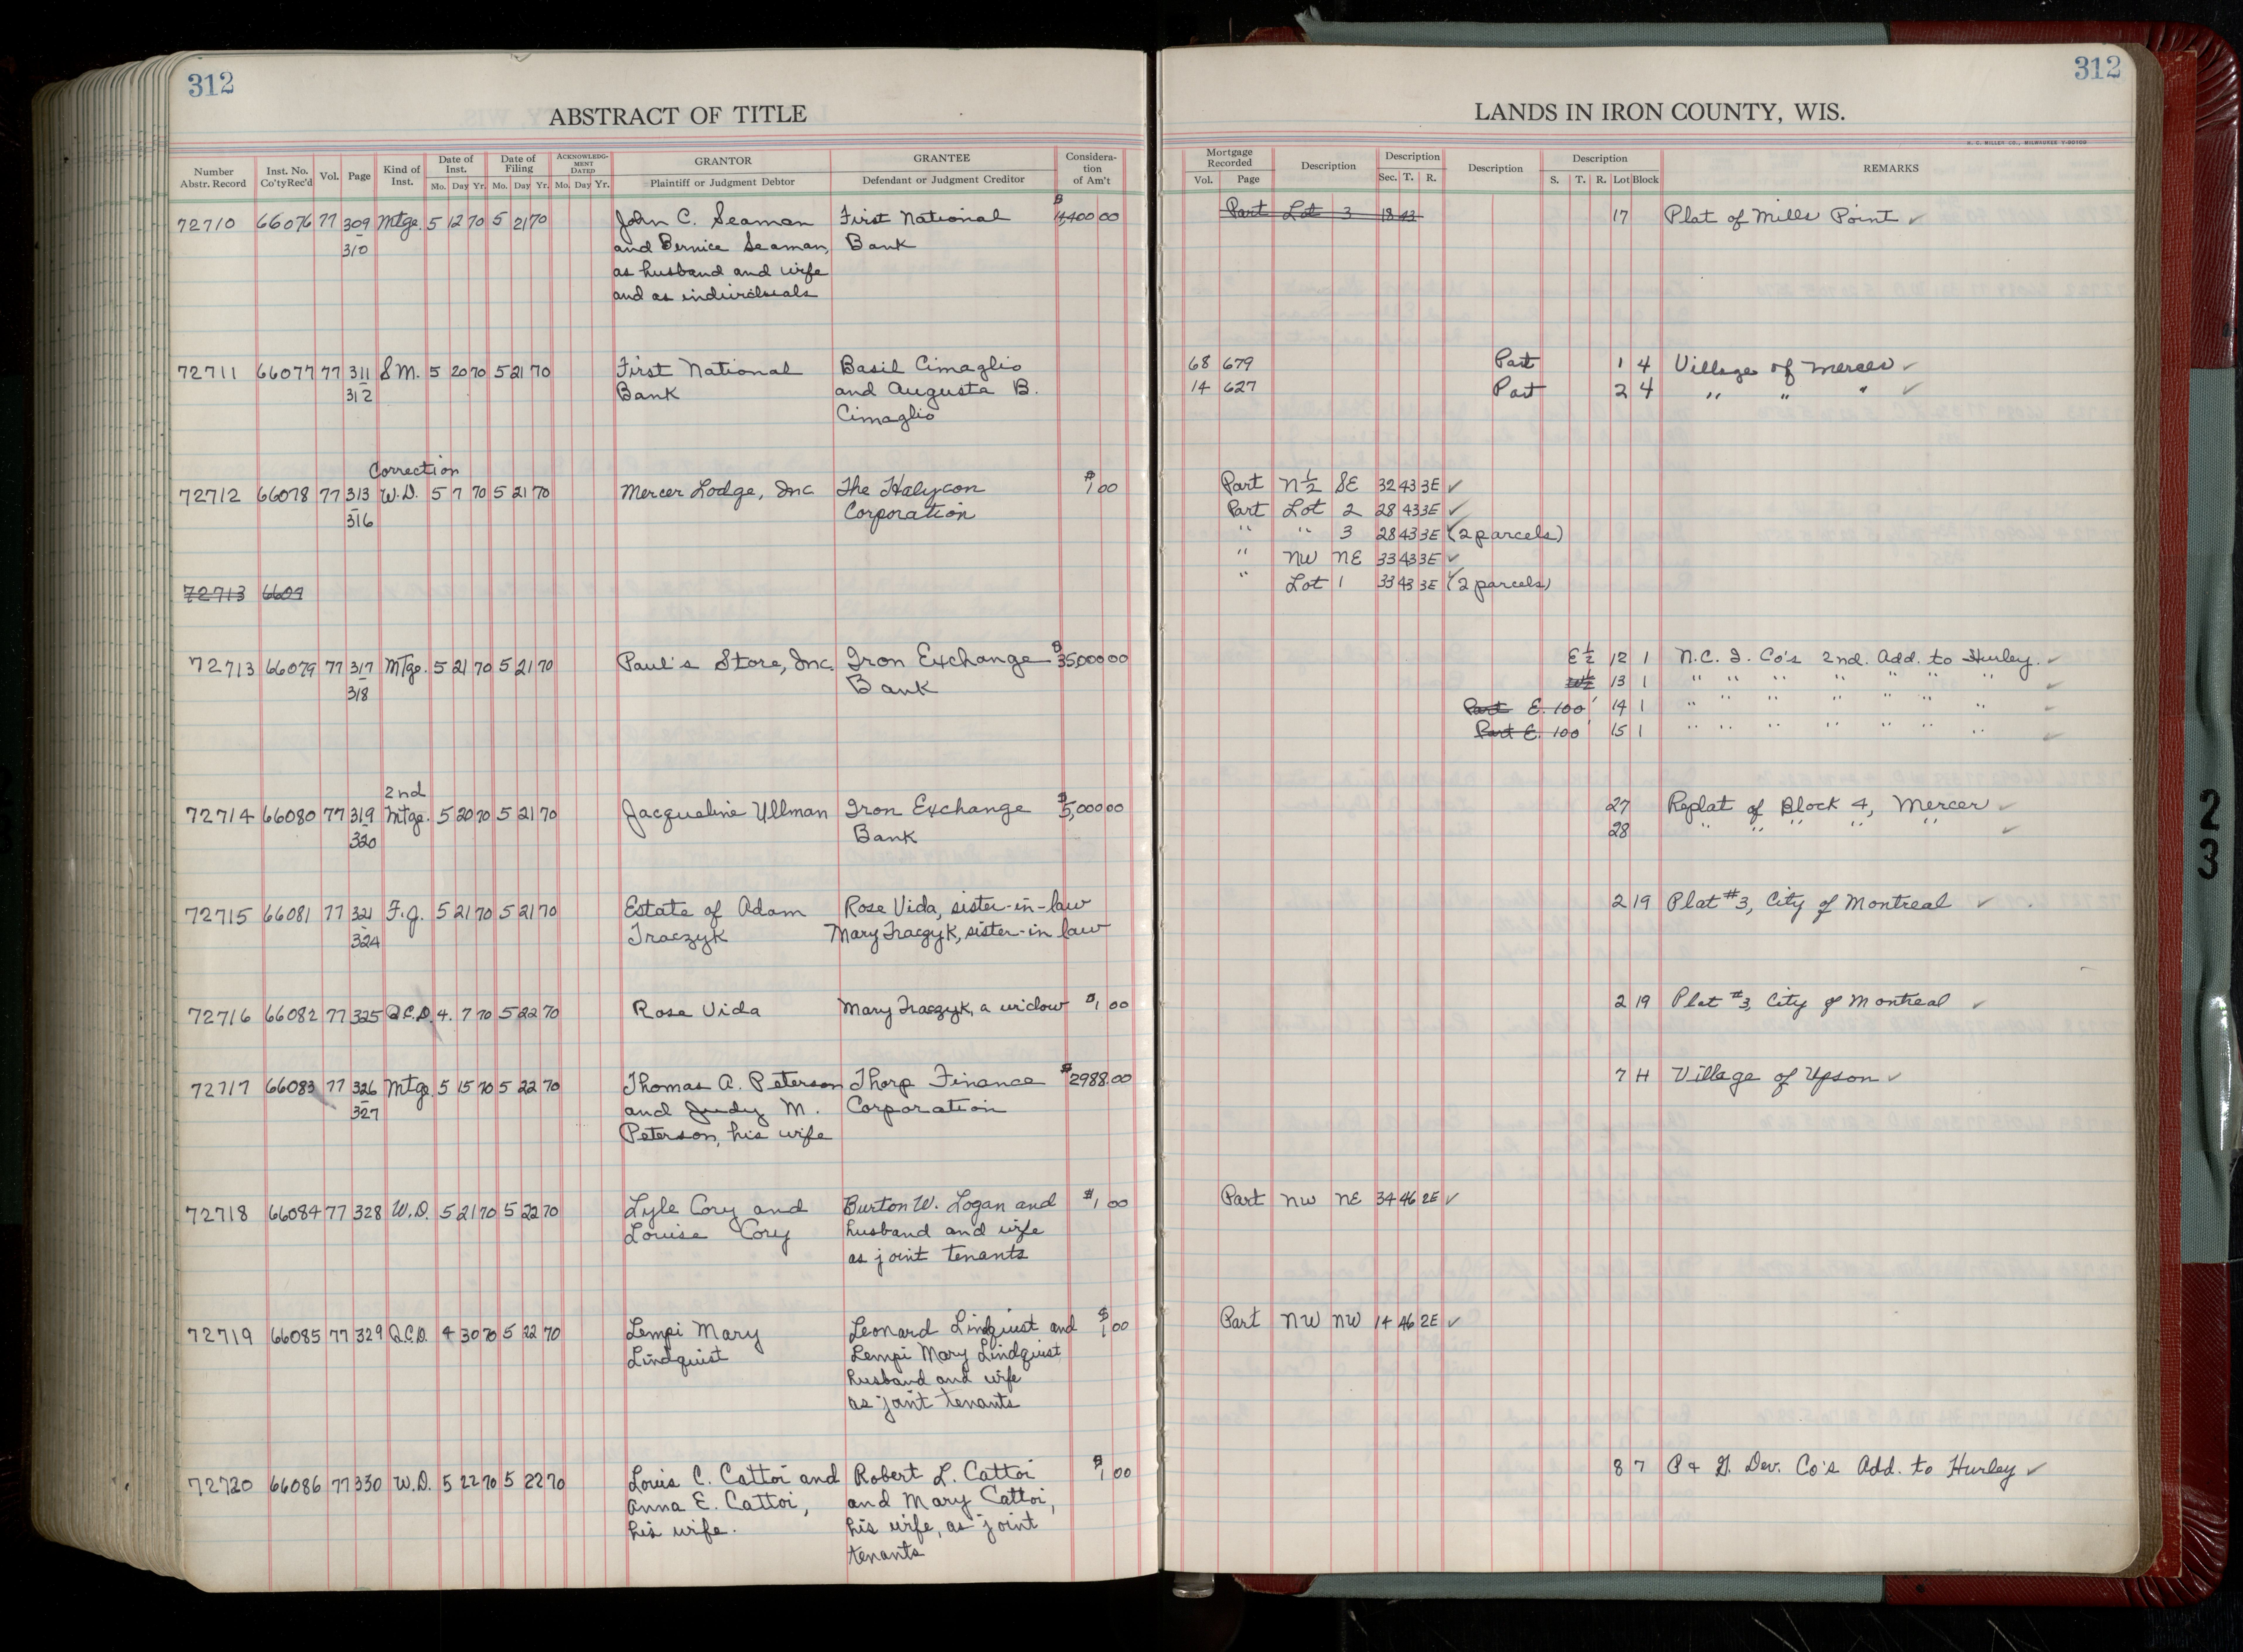 312
ABSTRACT OF TITLE
Number Abstr. Record | Inst. No. Co'ty Rec'd | Vol. | Page | Kind of Inst. | Date of Inst. Mo. Day Yr. | Date of Filing Mo. Day Yr. | ACKNOWLEDGMENT DATED Mo. Day Yr. | GRANTOR Plaintiff or Judgment Debtor | GRANTEE Defendant or Judgment Creditor | Consideration of Am't
72710 66076 77 309 Mtge. 5 12 70 5 21 70 John C. Seaman First National
310 and Bernice Seaman, Bank
as husband and wife
and as individuals
72711 66077 77 311 S.M. 5 20 70 5 21 70 First National Basil Cimaglio
312 Bank and Augusta B.
Cimaglio
Correction
72712 66078 77 313 W.D. 5 7 70 5 21 70 Mercer Lodge, Inc The Halycon $1 00
316 Corporation
72713 6609
72713 66079 77 317 Mtge. 5 21 70 5 21 70 Paul's Store, Inc. Iron Exchange $35,000 00
318 Bank
2nd
72714 66080 77 319 Mtge. 5 20 70 5 21 70 Jacqueline Ullman Iron Exchange $5,000 00
320 Bank
72715 66081 77 321 F.J. 5 21 70 5 21 70 Estate of Adam Rose Vida, sister-in-law
324 Traczyk Mary Traczyk, sister-in law
72716 66082 77 325 Q.C.D. 4. 7 70 5 22 70 Rose Vida Mary Traczyk, a widow $1 00
72717 66083 77 326 Mtge 5 15 70 5 22 70 Thomas A. Peterson Thorp Finance $2988.00
327 and Judy M. Corporation
Peterson, his wife
72718 66084 77 328 W.D. 5 21 70 5 22 70 Lyle Cory and Burton W. Logan and $1 00
Louise Cory husband and wife
as joint tenants
72719 66085 77 329 Q.C.D. 4 30 70 5 22 70 Lempi Mary Leonard Lindquist and $1 00
Lindquist Lempi Mary Lindquist
husband and wife
as joint tenants
72720 66086 77 330 W.D. 5 22 70 5 22 70 Louis C. Cattoi and Robert L. Cattoi $1 00
Anna E. Cattoi, and Mary Cattoi,
his wife. his wife, as joint
tenants
312
LANDS IN IRON COUNTY, WIS.
H. C. MILLER CO., MILWAUKEE
Mortgage Recorded Vol. Page | Description | Description Sec. T. R. | Description | Description S. T. R. Lot Block | REMARKS
Part Lot 3 18 43 17 Plat of Mills Point ✓
68 679 Part 1 4 Village of Mercer ✓
14 627 Part 2 4 " " " ✓
Part N½ SE 32 43 3E ✓
Part Lot 2 28 43 3E ✓
" " 3 28 43 3E ✓ (2 parcels)
" NW NE 33 43 3E ✓
" Lot 1 33 43 3E ✓ (2 parcels)
E½ 12 1 N.C. I. Co's 2nd. Add. to Hurley. ✓
W½ 13 1 " " " " " " " ✓
Part E. 100' 14 1 " " " " " " " ✓
Part E. 100' 15 1 " " " " " " " ✓
27 Replat of Block 4, Mercer ✓
28 " " " " " ✓
2 19 Plat #3, City of Montreal ✓
2 19 Plat #3, City of Montreal ✓
7 H Village of Upson ✓
Part NW NE 34 46 2E ✓
Part NW NW 14 46 2E ✓
8 7 P & G. Dev. Co's Add. to Hurley ✓
23